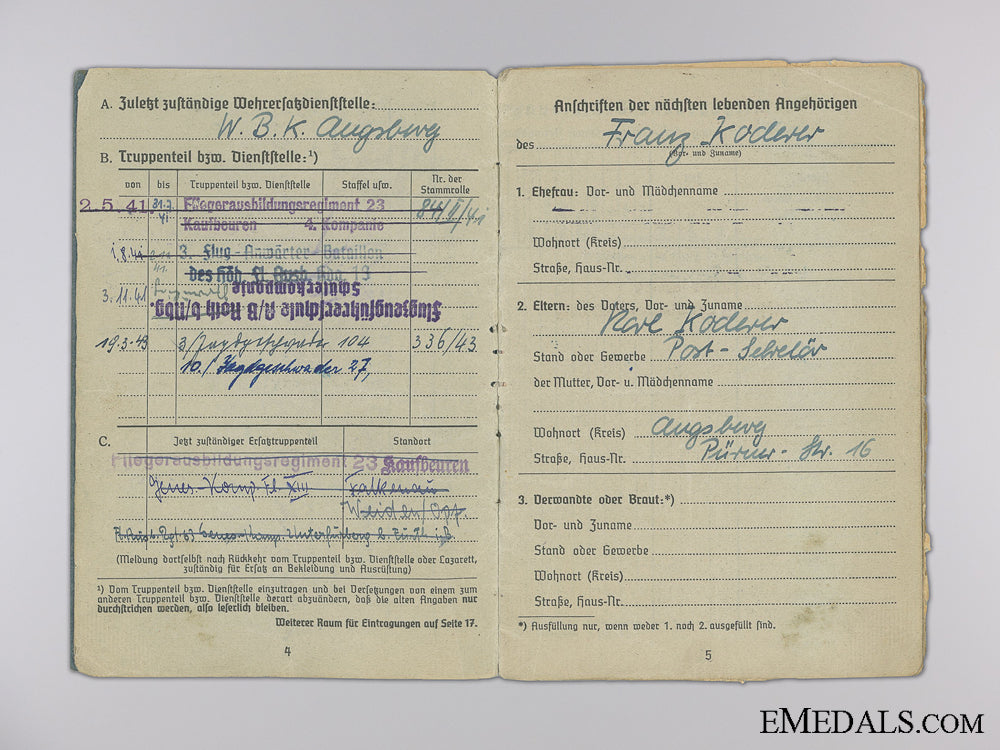 A. Zuletzt zuständige Wehrersatzdienststelle:
W. B. K. Augsburg
B. Truppenteil bzw. Dienststelle:¹)
von bis Truppenteil bzw. Dienststelle Staffel usw. Nr. der Stammrolle
2.5.41 31.7. 41 Fliegerausbildungsregiment 23
Kaufbeuren 4. Kompanie
1.8.41 3. Flug-Anwärter-Bataillon
des Höh. Fl. Ausb. Kdo. 13
3.11.41
Schülerkompanie
Flugzeugführerschule A/B Roth b/Nbg.
19.3.43 3/Jagdgeschwader 104 336/43
10./Jagdgeschwader 27,
C. Jetzt zuständiger Ersatztruppenteil Standort
Fliegerausbildungsregiment 23 Kaufbeuren
Genes.-Komp. Fl. XIII Falkenau
Weiden/Opf.
(Meldung dortselbst nach Rückkehr vom Truppenteil bzw. Dienststelle oder Lazarett,
zuständig für Ersatz an Bekleidung und Ausrüstung)
¹) Vom Truppenteil bzw. Dienststelle einzutragen und bei Versetzungen von einem zum
anderen Truppenteil bzw. Dienststelle derart abzuändern, daß die alten Angaben nur
durchstrichen werden, also leserlich bleiben.
Weiterer Raum für Eintragungen auf Seite 17.
4
Anschriften der nächsten lebenden Angehörigen
des Franz Koderer
(Vor- und Zuname)
1. Ehefrau: Vor- und Mädchenname
Wohnort (Kreis)
Straße, Haus-Nr.
2. Eltern: des Vaters, Vor- und Zuname
Karl Koderer
Stand oder Gewerbe Post-Sekretär
der Mutter, Vor- u. Mädchenname
Wohnort (Kreis) Augsburg
Straße, Haus-Nr. Pürner-Str. 16
3. Verwandte oder Braut:*)
Vor- und Zuname
Stand oder Gewerbe
Wohnort (Kreis)
Straße, Haus-Nr.
*) Ausfüllung nur, wenn weder 1. noch 2. ausgefüllt sind.
5
EMEDALS.COM